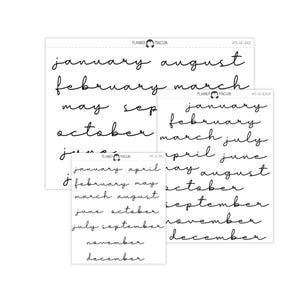 PLANNER PENGUIN
january august
february march
may sep
october
june
PLANNER PENGUIN
january
february
march july
april june
may august
october
september
november
december
PLANNER PENGUIN
january april
february may
march august
june october
july september
november
december